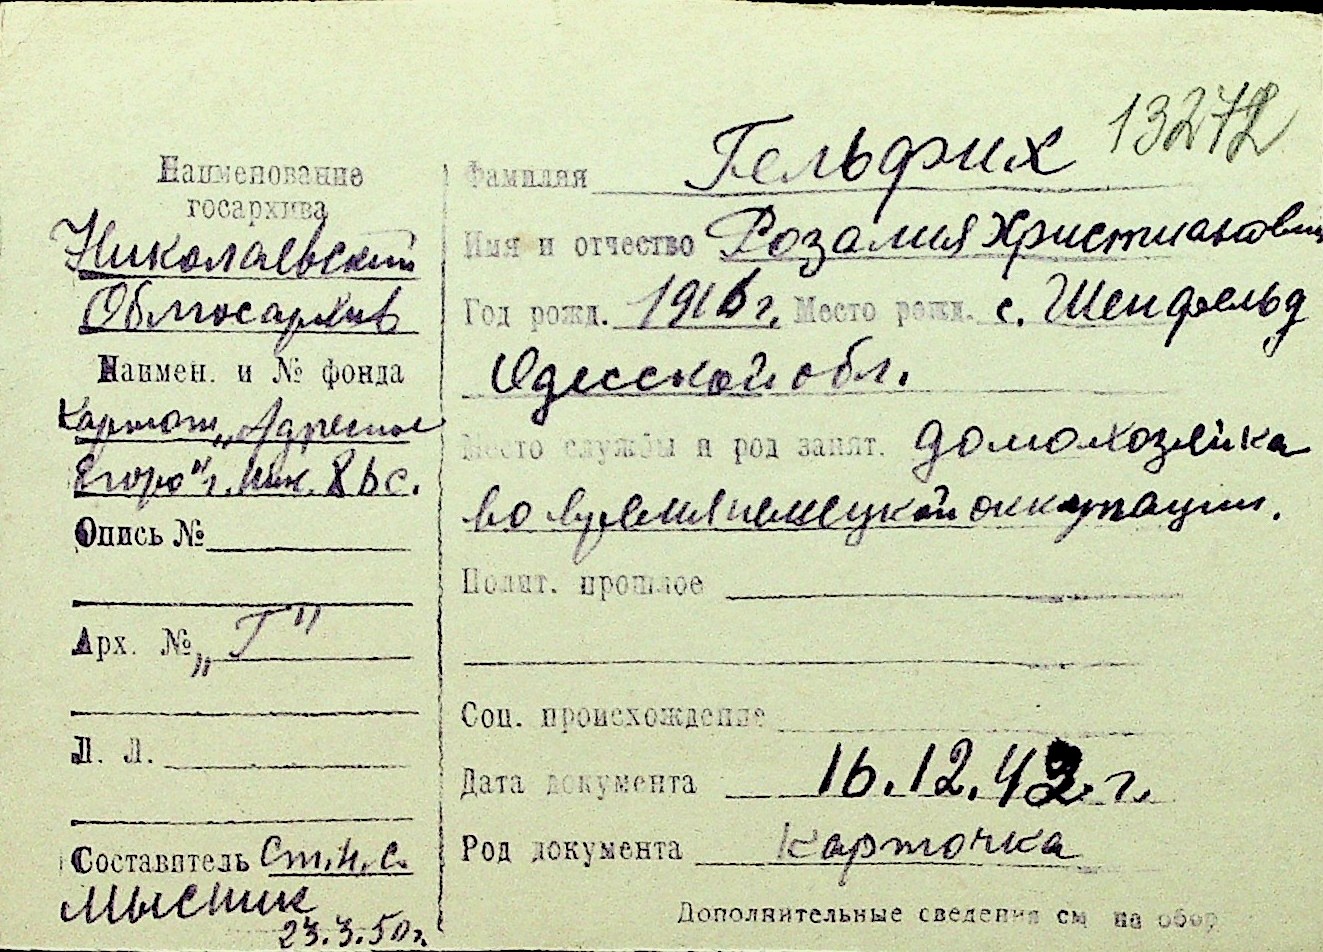 13272
Наименование
госархива
Николаевский
Облгосархив
Наимен. и № фонда
Картот. „Адресное
бюро" г. Ник.
Опись №
Арх. № „Г"
Л. Л.
Составитель Ст.н.с.
Мысник
23.3.50г.
Фамилия Гельфих
Имя и отчество Розалия Христиановн
Год рожд. 1916 г. Место рожд. с. Шенфельд
Одесской обл.
Место службы и род занят. домохозяйка
во время немецкой оккупации.
Полит. прошлое
Соц. происхождение
Дата документа 16.12.42. г.
Род документа карточка
Дополнительные сведения см на обор